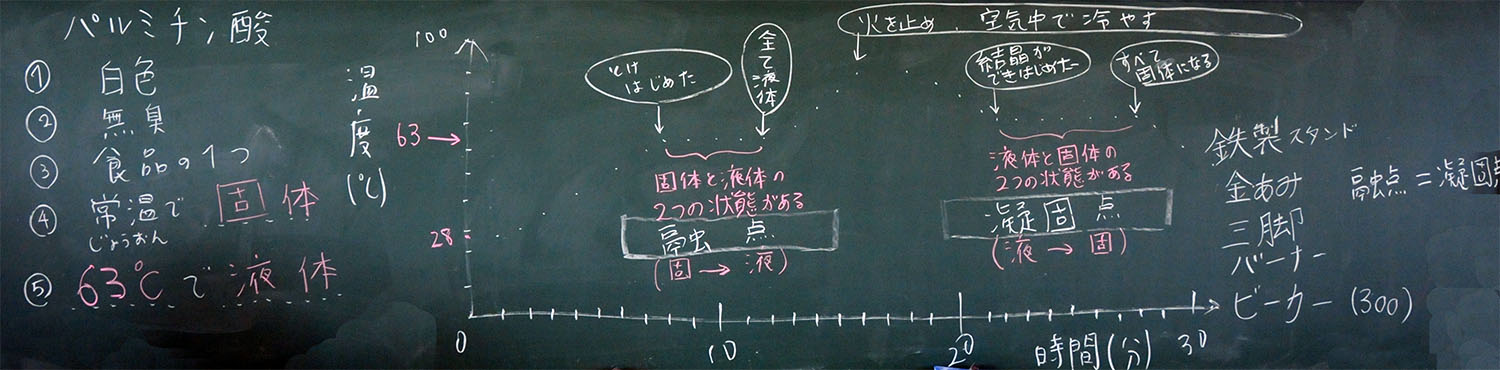 パルミチン酸
① 白色
② 無臭
③ 食品の1つ
④ 常温で固体
じょうおん
⑤ 63℃で液体
温度(℃)
100
63
28
0
10
20
30
時間(分)
とけ
はじめた
全て液体
固体と液体の
2つの状態がある
融点
(固→液)
火を止め、空気中で冷やす
結晶が
できはじめた
すべて
固体になる
液体と固体の
2つの状態がある
凝固点
(液→固)
鉄製スタンド
金あみ
三脚
バーナー
ビーカー(300)
融点=凝固点